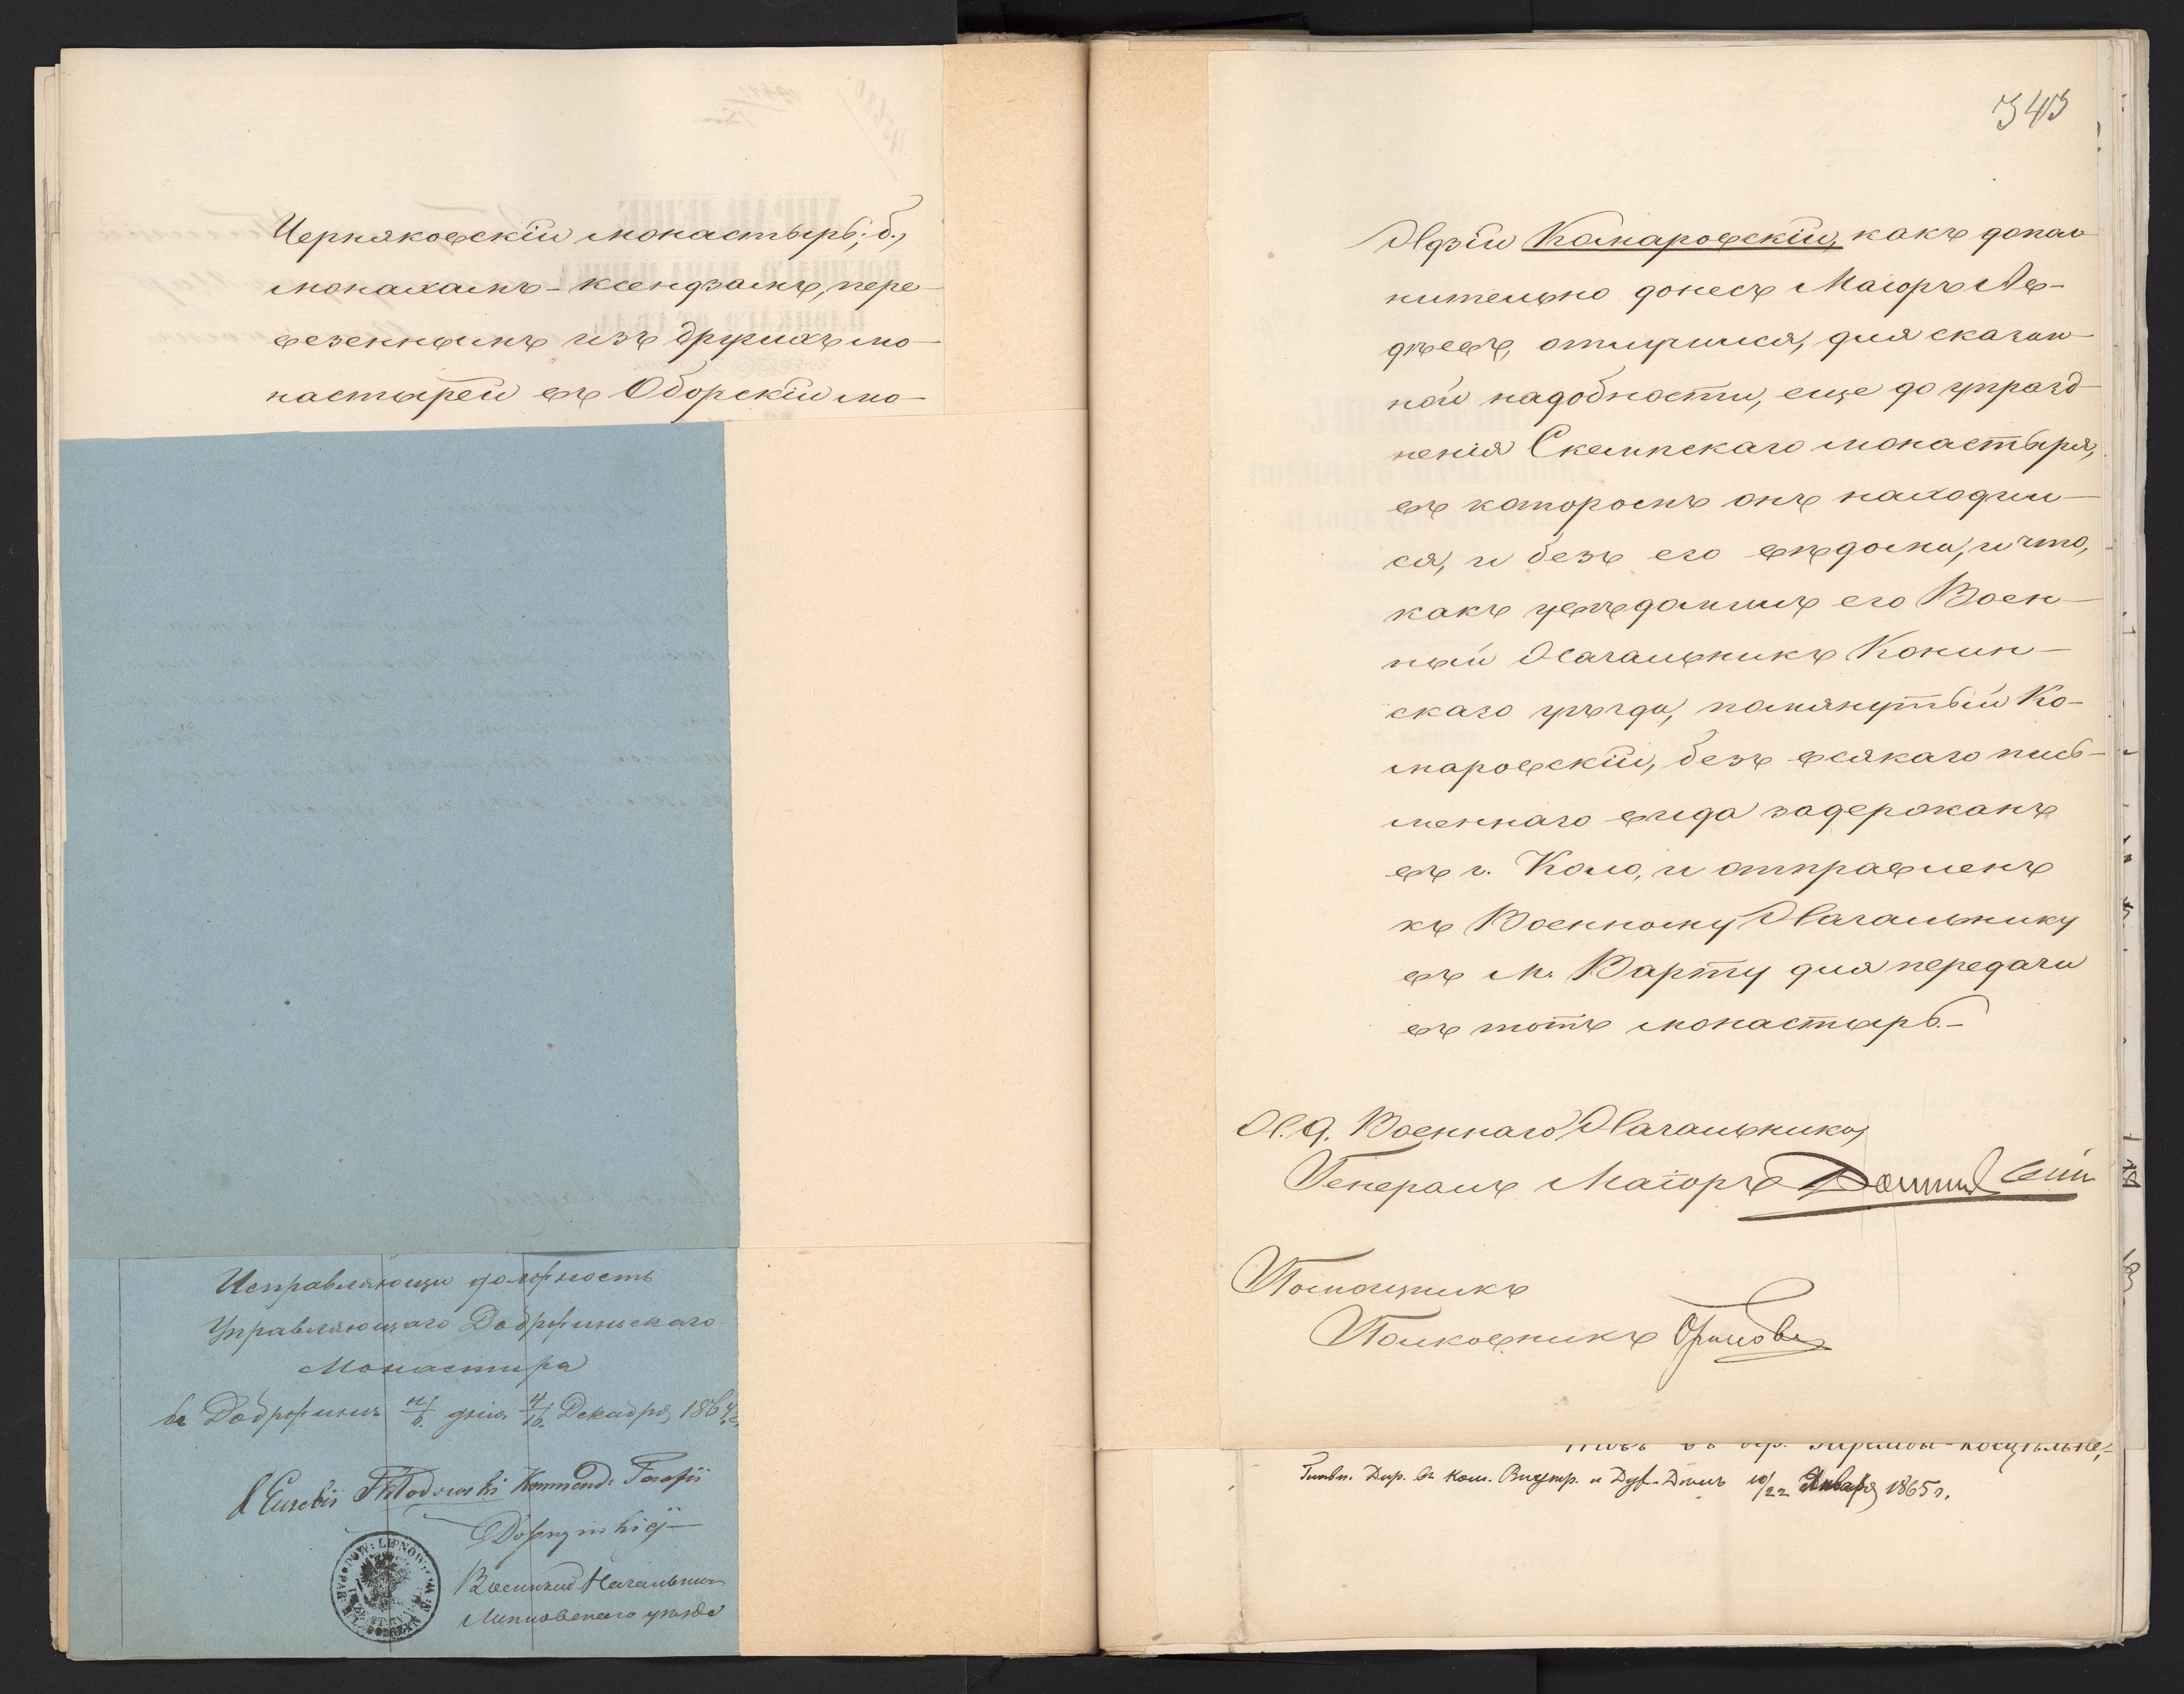 Черняковскій монастырь; б.,
монахамъ-ксендзамъ, пере-
везеннымъ изъ другихъ мо-
настырей въ Оборскій мо-
Исправляющи должность
Управляющаго Добржиньскаго
Монастира
въ Добржинѣ дня 4/16 Декабря 1864 г.
X Eusebii Kommend: Parafii
Dobrzyńskiej
Военный Начальникъ
Липновскаго уѣзда
343
Комаровскій, какъ допол-
нительно донесъ Маіоръ Ав-
дѣевъ, отлучился, для сказан-
ной надобности, еще до упразд-
ненія Скемпскаго монастыря,
въ которомъ онъ находил-
ся, и безъ его вѣдома, и что,
какъ увѣдомилъ его Воен-
ный Начальникъ Конин-
скаго уѣзда, помянутый Ко-
маровскій, безъ всякаго пись-
меннаго вида задержанъ
въ г. Коло, и отправленъ
къ Военному Начальнику
въ м. Варту для передачи
въ тотъ монастырь.-
И. д. Военнаго Начальника,
Генералъ Маіоръ
Помощникъ
Полковникъ
Дир. въ Ком. Внутр. и Дух. Дѣлъ 10/22 Января 1865 г.